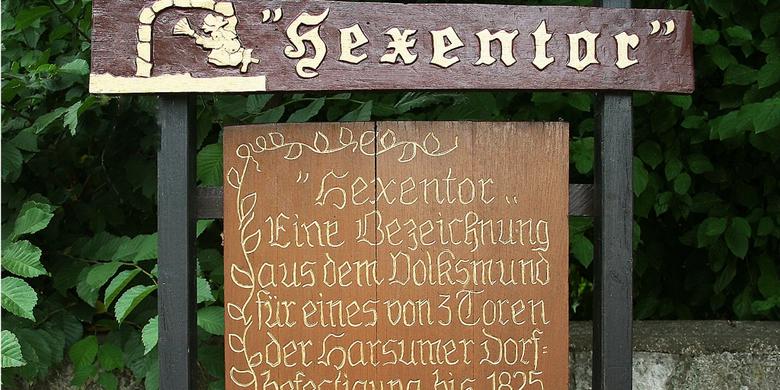 "Hexentor"
"Hexentor„
Eine Bezeichnung
aus dem Volksmund
für eines von 3 Toren
der Harsumer Dorf=
befestigung bis 1825